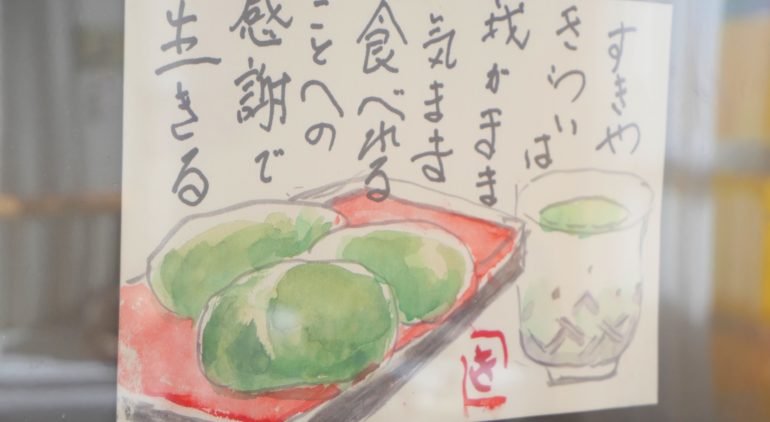 すきや
きらいは
我がまま
気まま
食べれる
ことへの
感謝で
生きる
き